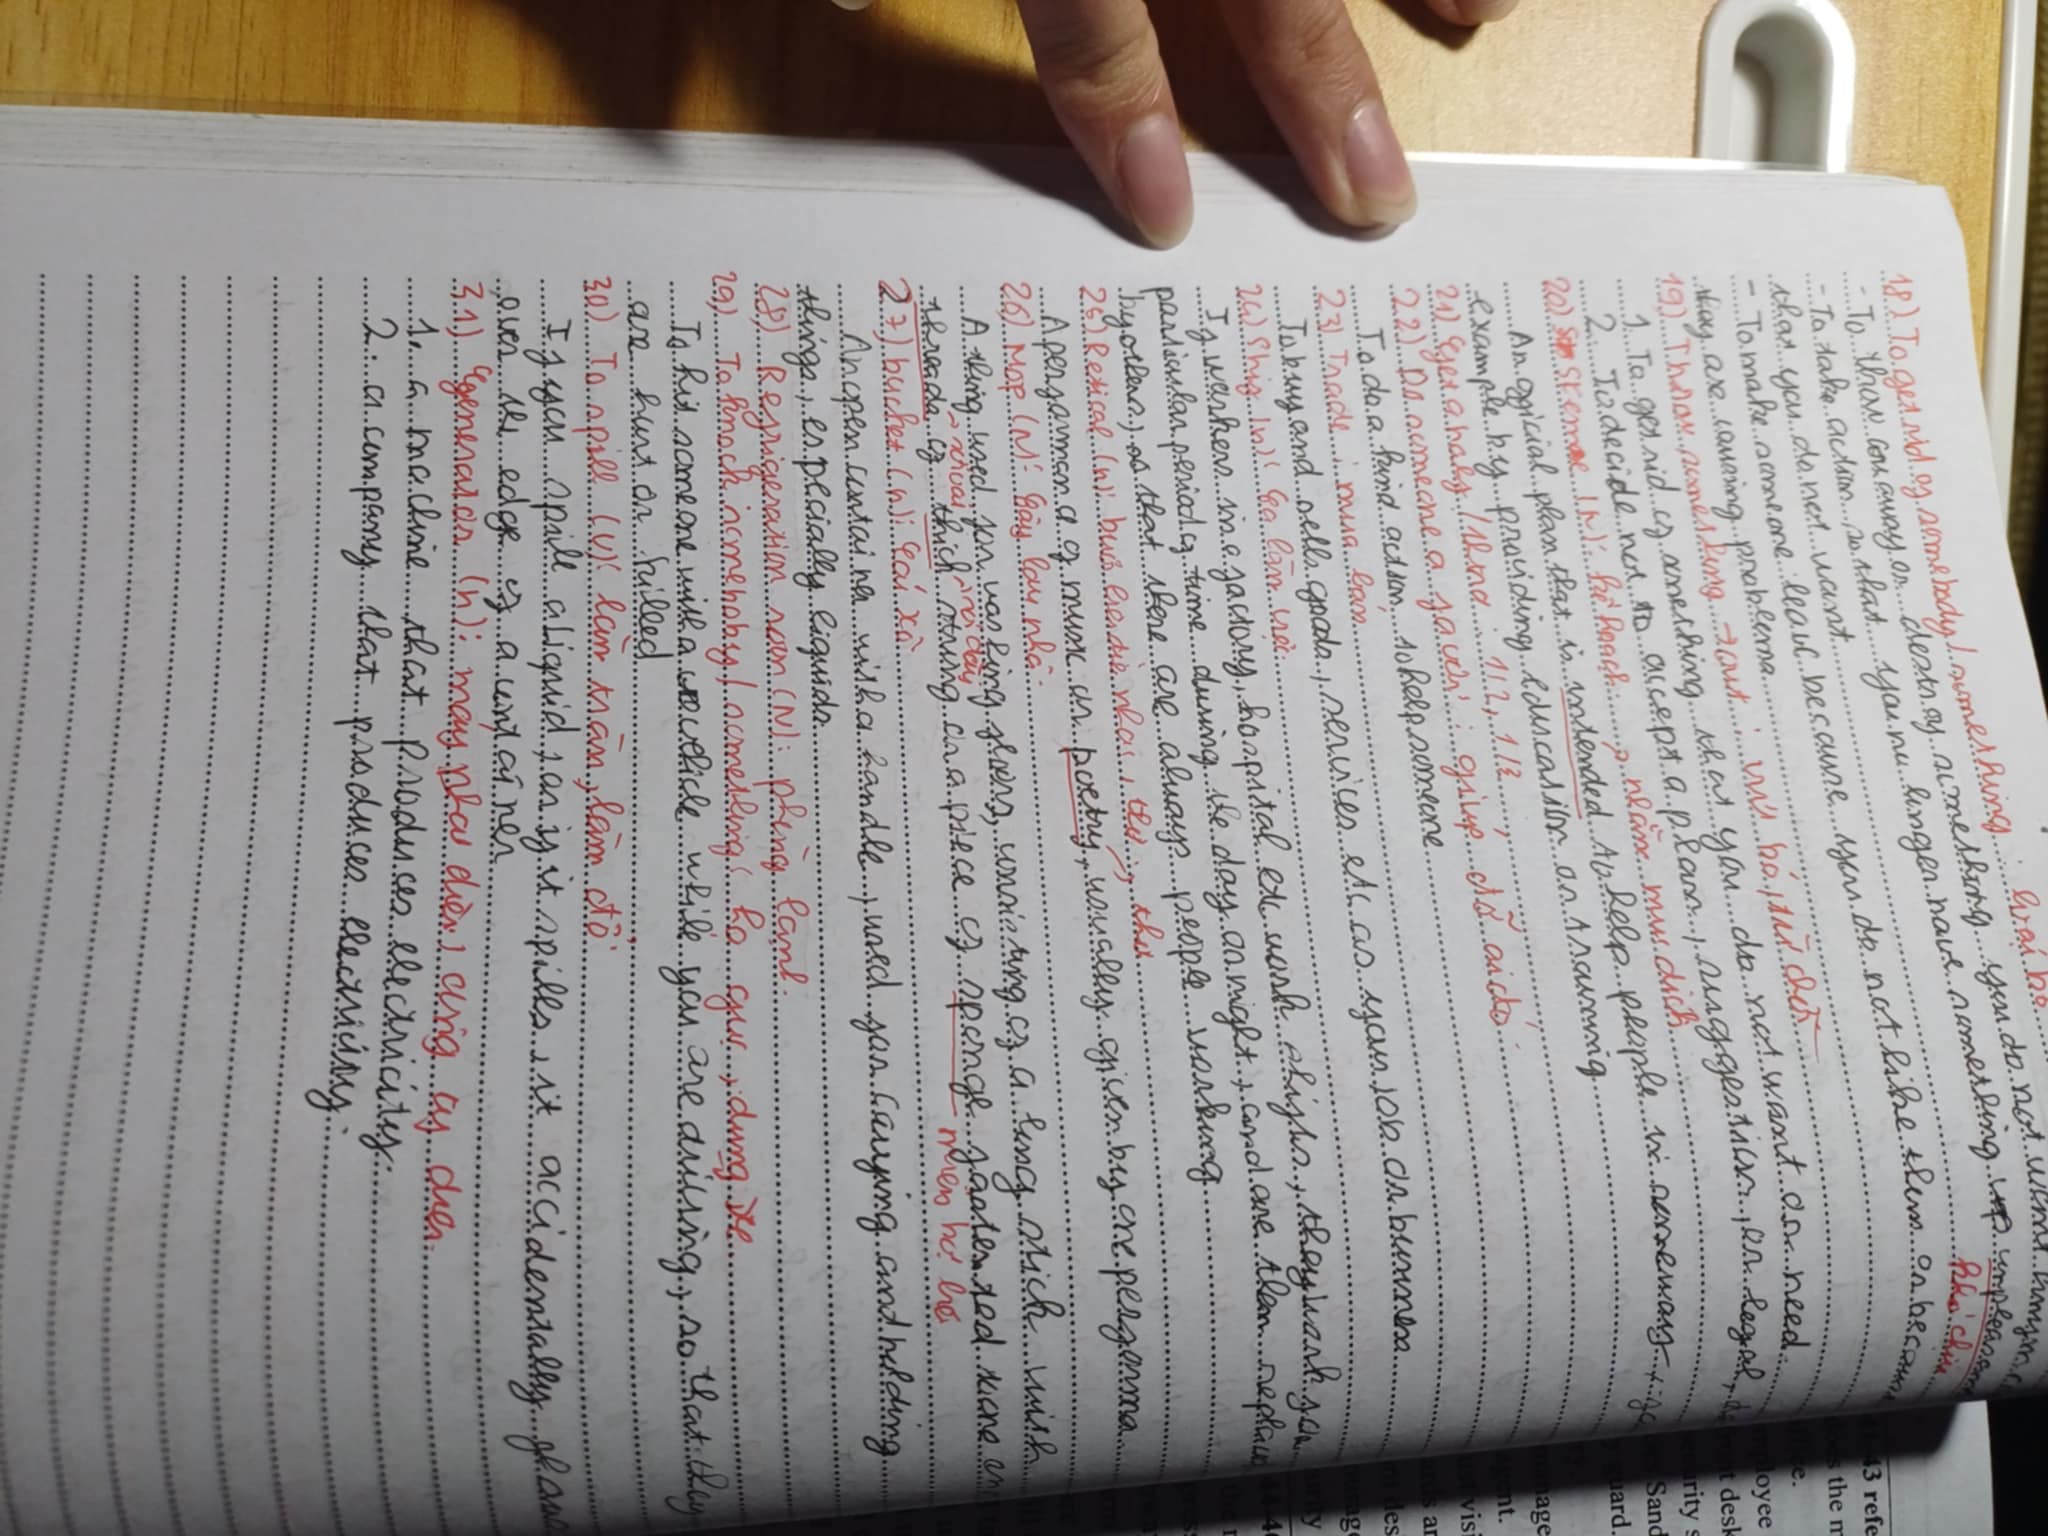 18) To get rid of somebody / something : loại bỏ
- To throw away or destroy something you do not want
- To take action so that you no longer have something unpleasant
khó chịu
that you do not want
- To make someone leave because you do not like them or because
they are causing problems
19) Throw something → out : vứt bỏ, từ chối
1. To get rid of something that you do not want or need.
2. To decide not to accept a plan, suggestion, or legal,
20) (N): kế hoạch nhằm mục đích
An official plan that is intended to help people in some way, for
example by providing education or training
21) Get a half / third : 1/2, 1/3
22) Do someone a favor : giúp đỡ ai đó
To do a kind action to help someone
23) Trade : mua bán
To buy and sells goods, services etc as your job or business
24) Shif (n): Ca làm việc
If workers in a factory, hospital etc work shifts, they work for
particular period of time during the day or night, and are then replaced
by others, so that there are always people working
25) Retical (n): buổi nhạc, thơ
A performance of music or poetry, usually given by one performa
26) Mop (N): Cây lau nhà
A thing used for washing floors, consisting of a long stick with
threads of thick string or a piece of sponge
27) bucket (n): Cái xô
An open container with a handle, used for carrying and holding
things, especially liquids
28) Refrigeration room (N): phòng lạnh.
29) To knock somebody / something: hạ gục, đụng xe
To hit someone with a vehicle while you are driving, so that they
are hurt or killed
30) To spill (V): làm tràn, làm đổ
If you spill a liquid, or if it spills, it accidentally flows
over the edge of a container
31) Generator (n): máy phát điện, công ty điện.
1. a machine that produces electricity.
2. a company that produces electricity.
43 refe
does the m
ffice.
mployee
ont desk
ecurity s
Sand
guard.